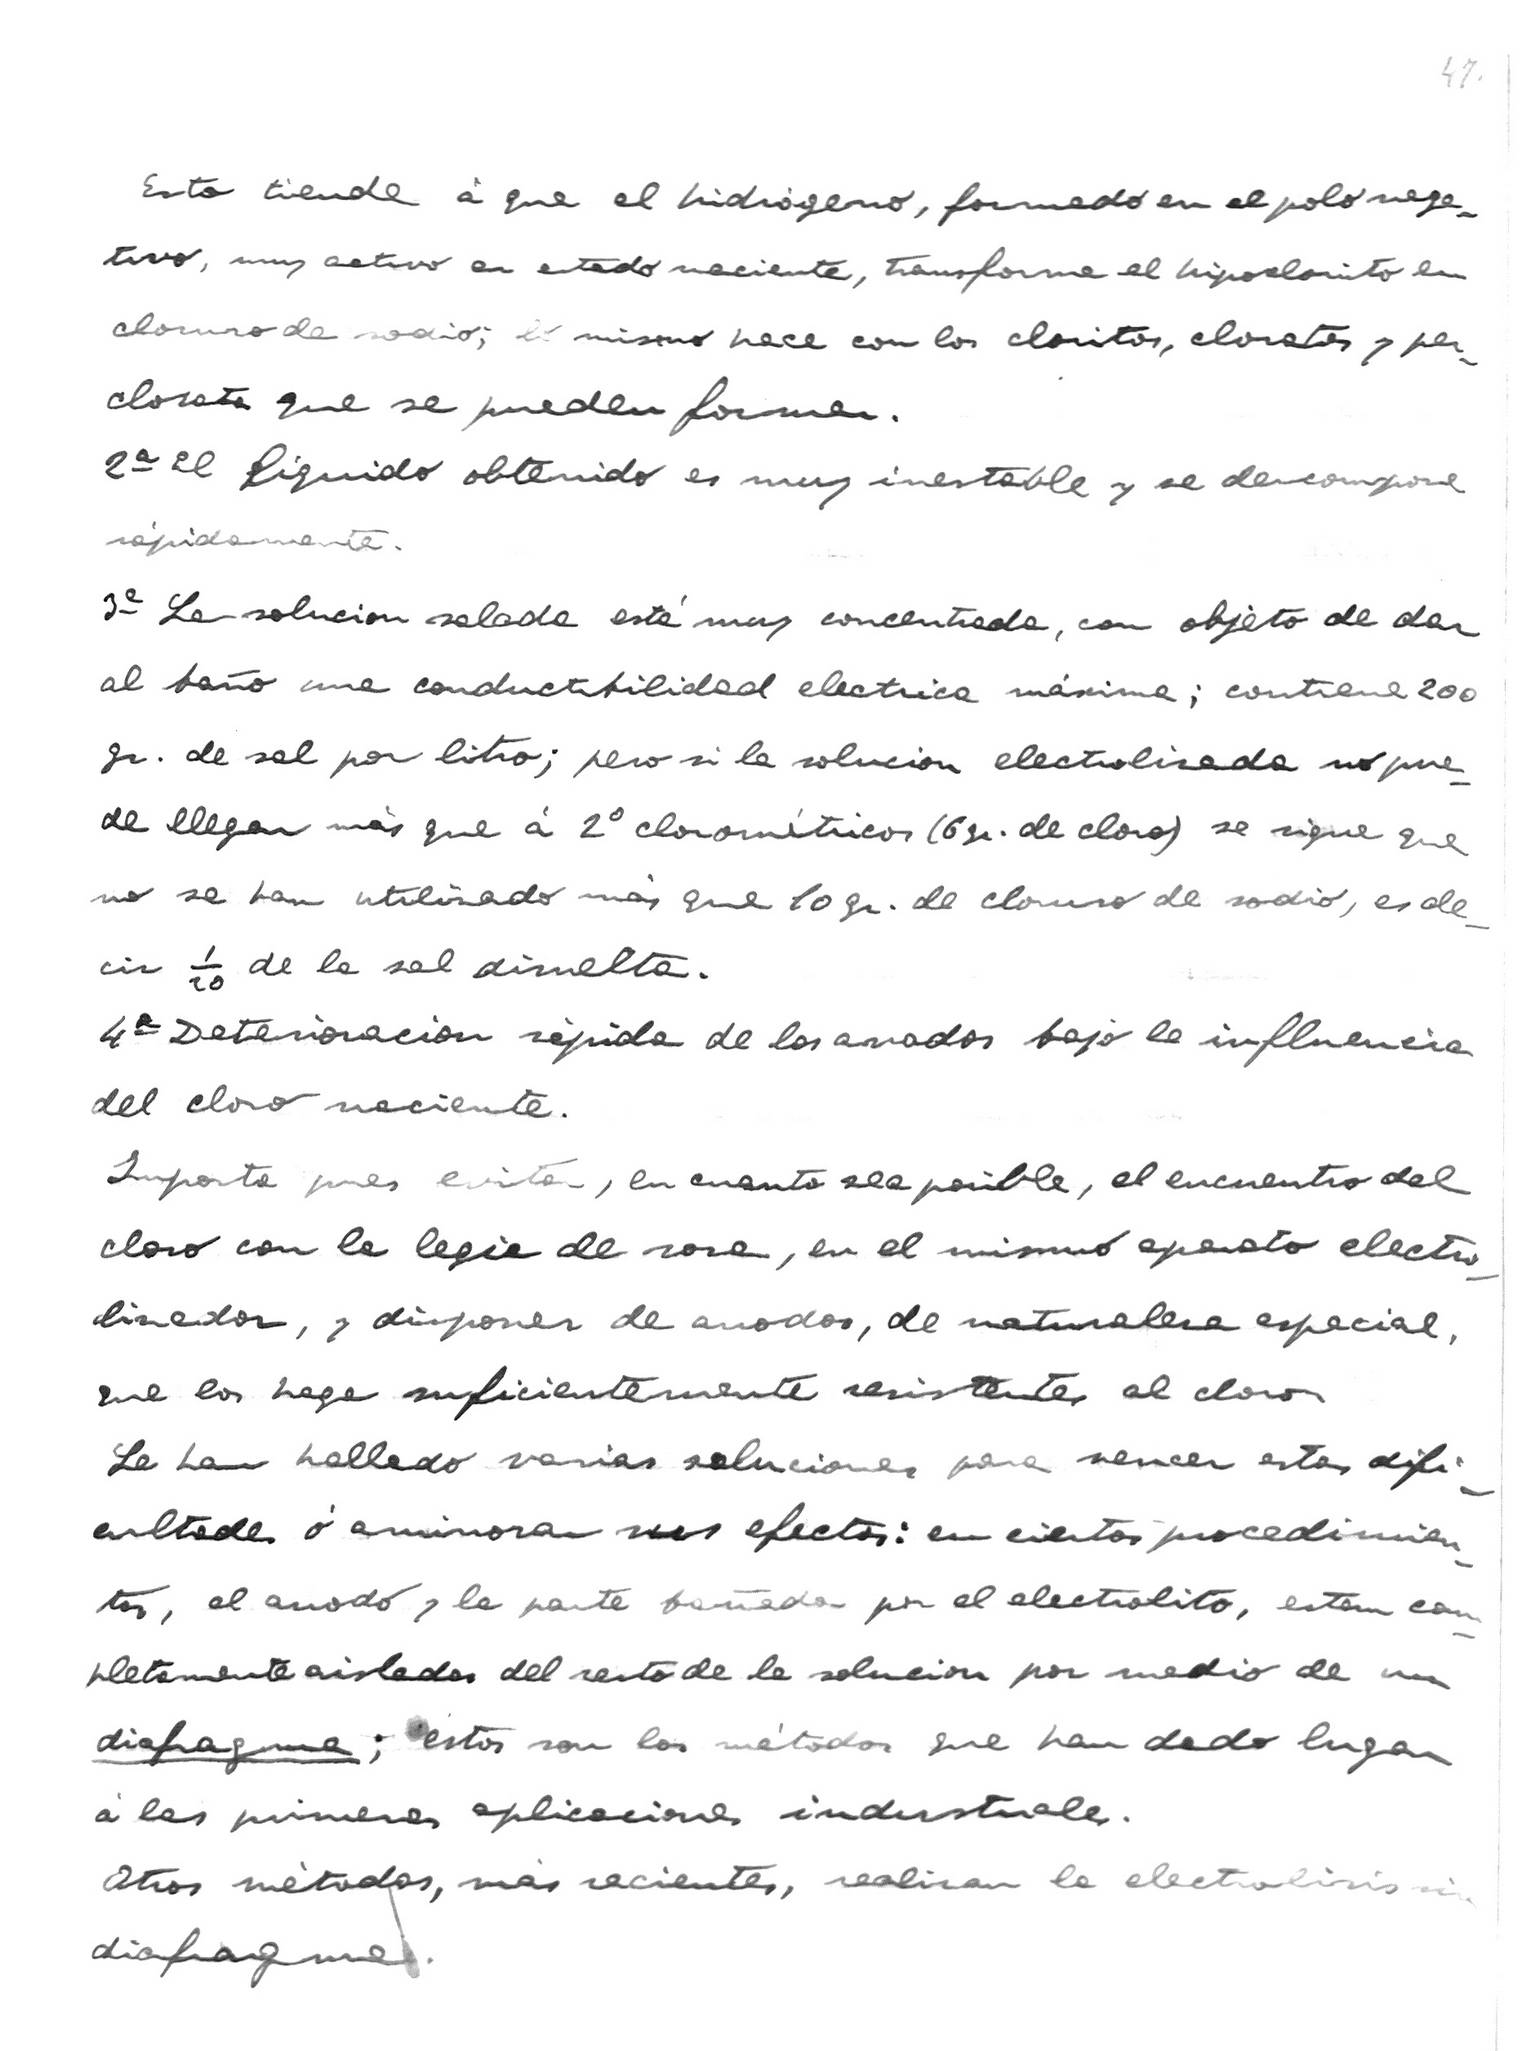 47.
Esto tiende á que el hidrógeno, formado en el polo nega-
tivo, muy activo en estado naciente, transforme el hipoclorito en
cloruro de sodio; lo mismo hace con los cloritos, cloratos y per-
clorato que se pueden formar.
2ª El líquido obtenido es muy inestable y se descompone
rápidamente.
3ª La solucion salada está muy concentrada, con objeto de dar
al baño una conductibilidad electrica máxima; contiene 200
gr. de sal por litro; pero si la solucion electrolizada no pue-
de llegar más que á 2º clorométricos (6 gr. de cloro) se sigue que
no se han utilizado más que 10 gr. de cloruro de sodio, es de-
cir 1/20 de la sal disuelta.
4ª Deterioracion rápida de los anodos bajo la influencia
del cloro naciente.
Importa pues evitar, en cuanto sea posible, el encuentro del
cloro con la legia de sosa, en el mismo aparato electro-
lizador, y disponer de anodos, de naturaleza especial,
que los haga suficientemente resistentes al cloro
Se han hallado varias soluciones para vencer estas difi-
cultades ó aminorar sus efectos: en ciertos procedimien-
tos, el anodo y la parte bañada por el electrolito, estan com-
pletamente aislados del resto de la solucion por medio de un
diafragma; éstos son los métodos que han dado lugar
á las primeras aplicaciones industriales.
Otros métodos, más recientes, realizan la electrolisis sin
diafragma.